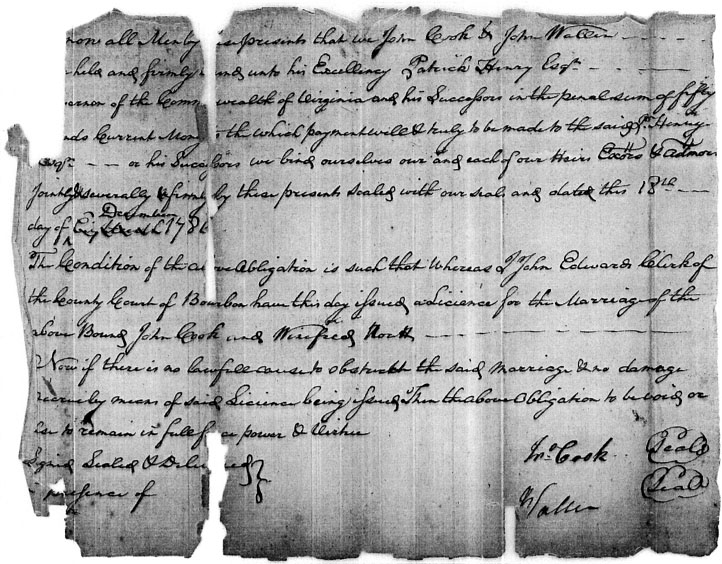 now all Men by ese presents that we John Cook & John Wallin
held and firmly bound unto his Excellency Patrick Henry Esqr
vernor of the Comm wealth of Virginia and his Successors in the penal sum of fifty
nds Current Money to the which payment well & truly to be made to the said P. Henry
Esqr or his Successors we bind ourselves our and each of our Heirs Exors & Admors
Jointly & severally & firmly by these presents sealed with our seals and dated this 18th
December
day of 1786
The Condition of the above Obligation is such that Whereas I John Edwards Clerk of
the County Court of Bourbon have this day issued a Licience for the Marriage of the
above Bound John Cook and Winifred
Now if there is no lawfull cause to obstruckt the said Marriage & no damage
accrue by means of said Licience being issued Then the above Obligation to be void or
lse to remain in full force power & Virtue
Signed Sealed & Delivered
presence of
Jno. Cook Seal
Wallin Seal